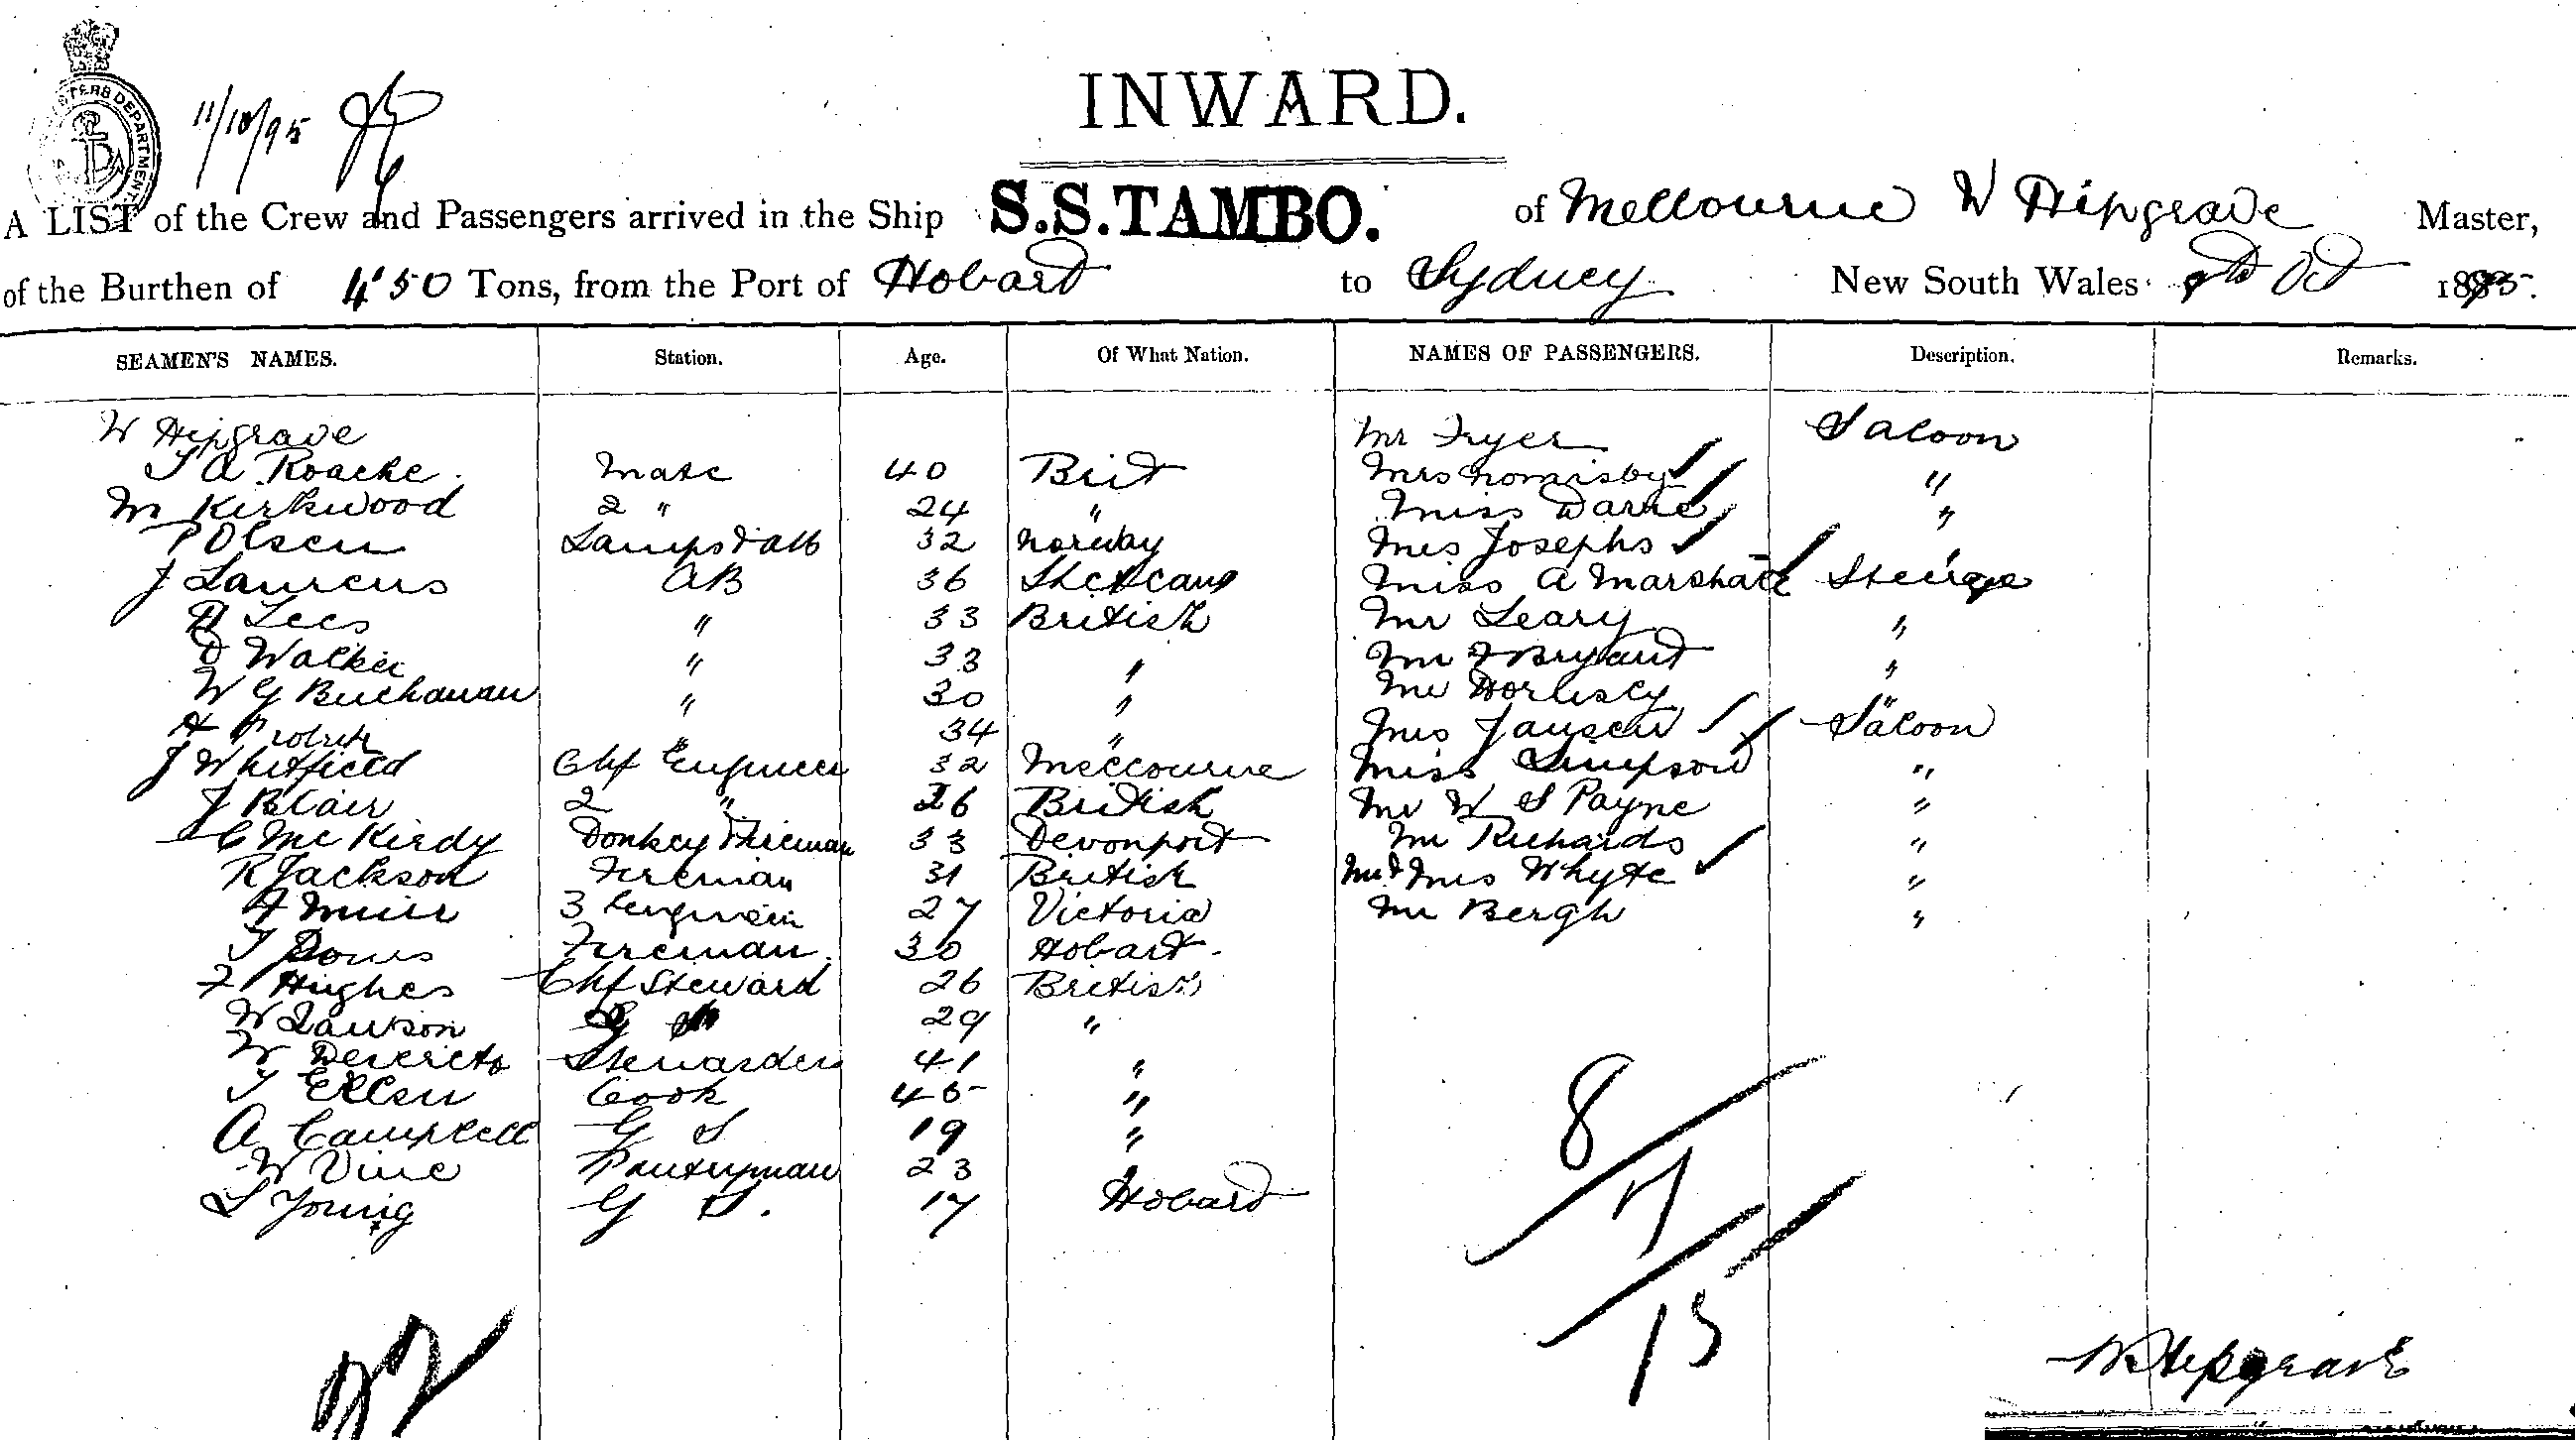 11/10/95
INWARD.
A LIST of the Crew and Passengers arrived in the Ship S.S. TAMBO. of Melbourne W Hipgrave Master,
of the Burthen of 450 Tons, from the Port of Hobart to Sydney New South Wales 9th Oct 1895.
SEAMEN'S NAMES. Station. Age. Of What Nation. NAMES OF PASSENGERS. Description. Remarks.
W Hipgrave Mr Fryer Saloon
T A Roache Mate 40 Brit Mrs "
M Kirkwood 2 " 24 " Miss "
P Olsen Lamps & AB 32 Norway Mrs Josephs
J Laurens AB 36 Miss A Marshall Steerage
Lees " 33 British Mr Leary "
D Walker " 33 " Mr F Bryant "
W G Buchanan " 30 " Mr "
A " 34 " Mrs Jansen Saloon
J Whitfield Chf Engineer 32 Melbourne Miss Simpson "
J Blair 2 " 26 British Mr W S Payne "
C McKirdy Donkey Fireman 33 Devonport Mr Richards "
R Jackson Fireman 31 British Mr & Mrs Whyte "
F Muir 3 Engineer 27 Victoria Mr Bergh "
T Fireman 30 Hobart
F Hughes Chf Steward 26 British
W Lawson 29 "
W Stewardess 41 "
T Ellen Cook 45 "
A Campbell G S 19 "
W Vine Pantryman 23 "
S Young G S. 17 Hobart
8
7
15
22
W Hipgrave